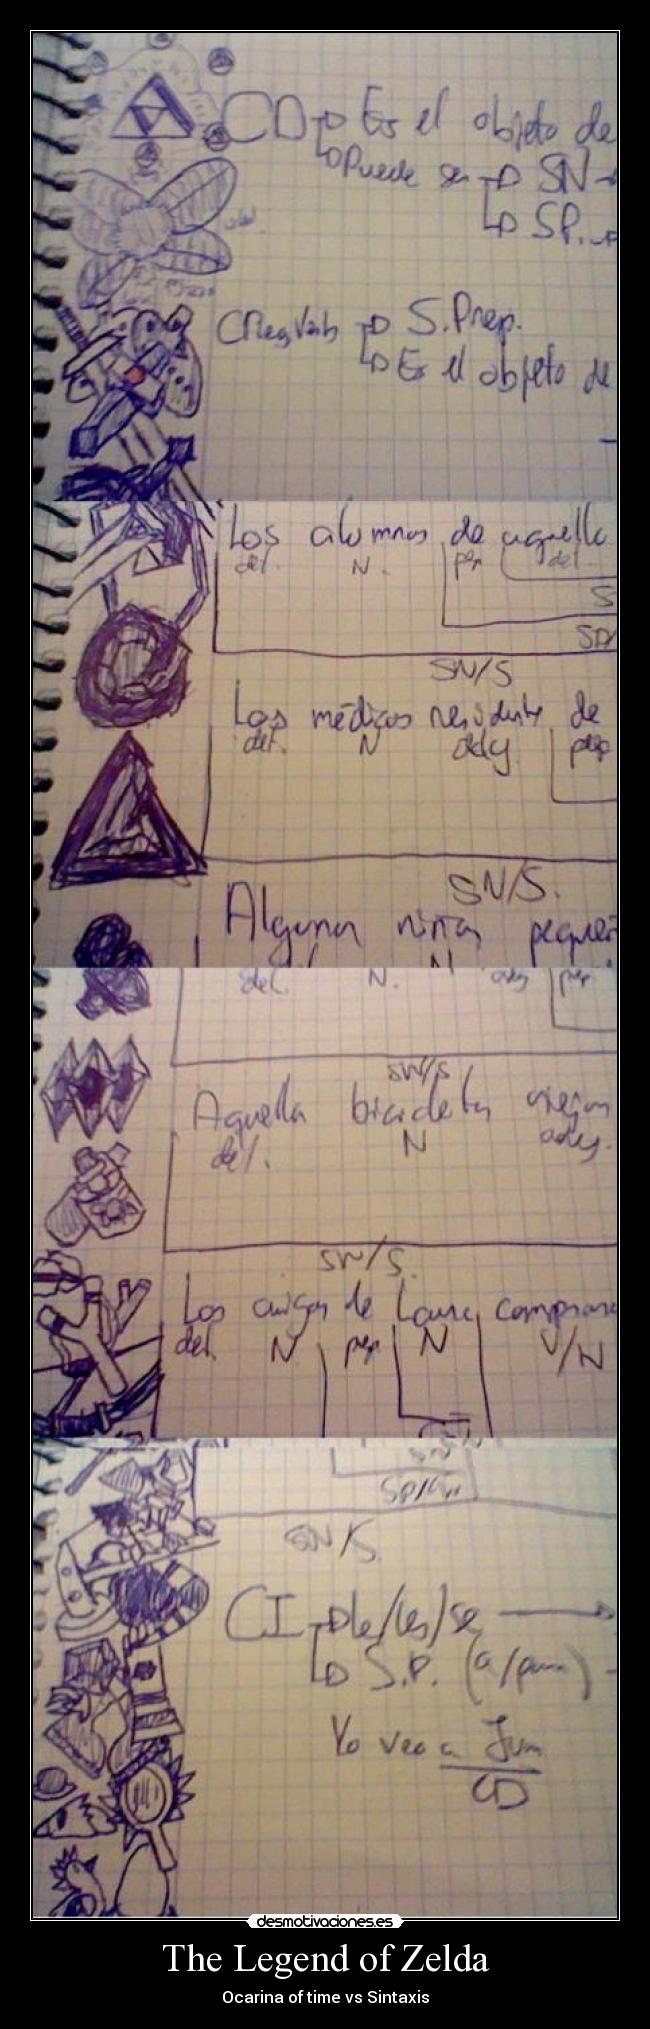 CD Es el objeto de
Puede ser SN
SP.
CRegVerb S.Prep.
Es el objeto de
Los alumnos de aquella
det. N. prep det.
S
SP/
SN/S
Los médicos residente de
det. N adj prep
SN/S.
Algunas niñas pequeñ
N
det. N. adj prep
SN/S
Aquella bicicleta viejas
det. N adj.
SN/S.
Los amigas de Laura compraron
det. N prep N V/N
SN/
SP/CN
SN/S.
CI le/les/se
S.P. (a/para)
Yo veo a Juan
CD
desmotivaciones.es
The Legend of Zelda
Ocarina of time vs Sintaxis